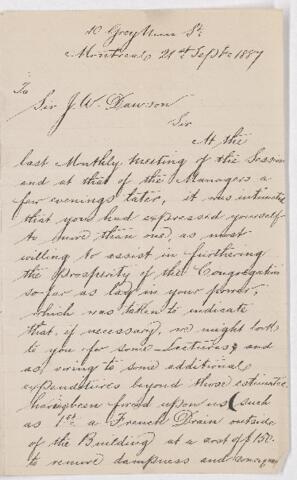 10 Grey Nun St.
Montreal 21st Septr 1887
To
Sir J. W. Dawson
Sir
At the
last Monthly meeting of the Session
and at that of the Managers a
few evenings later, it was intimated
that you had expressed yourself
to more than one, as most
willing to assist in furthering
the Prosperity of the Congregation
so far as lay in your power,
which was taken to indicate
that, if necessary, we might look
to you for some Lectures; and
as owing to some additional
expenditures beyond those estimated
having been forced upon us (such
as 1st a French Drain outside
of the Building at a cost of $150.
to remove dampness and